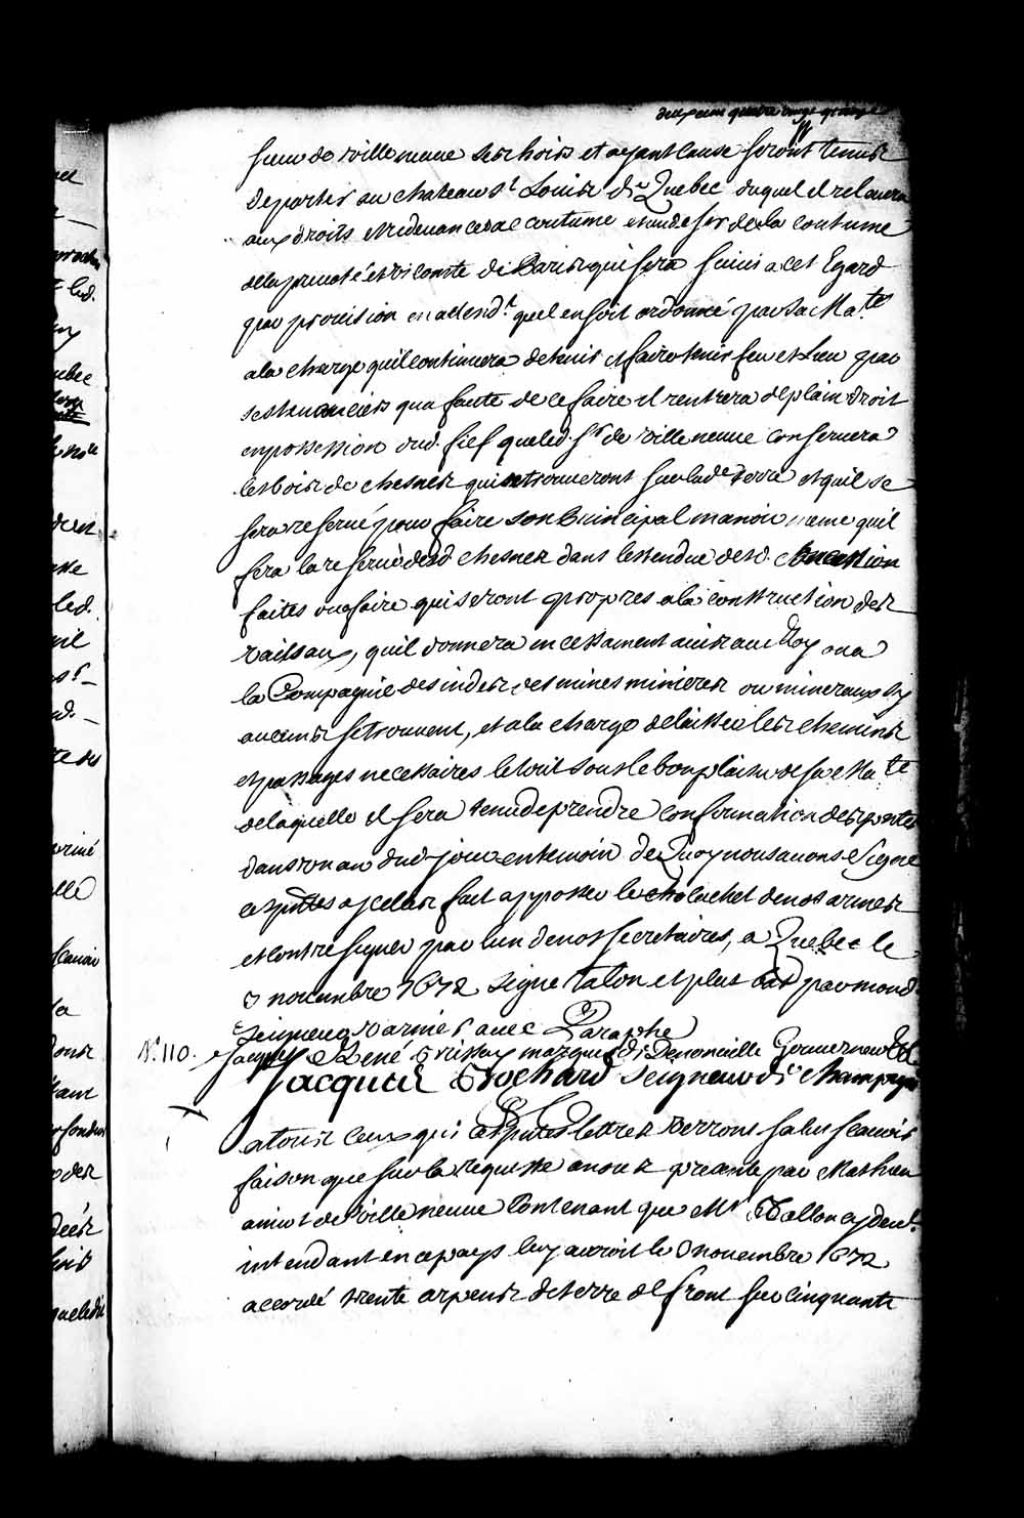 deux cens quatre vingt
sieur de Villeneuve ses hoirs et ayant cause seront tenus
de porter au chateau St Louis de Quebec duquel il relevera
aux droits et redevances accoutumé et au desir de la coutume
de la prevoté et vicomté de Paris qui sera suivi a cet Egard
par provision en attendt quel en soit ordonné par sa Mate
a la charge quil continuera de tenir et faire tenir feu et Lieu par
ses tenanciers qua faute de ce faire il rentrera de plain droit
en possession dud. fief que led. Sr de Villeneuve conservera
les bois de chesnes qui se trouveront sur lade terre et quil se
sera reservé pour faire son Principal manoir meme quil
fera la reserve desd chesnes dans lestendue desd. Concession
faites ou a faire qui seront propres a la construction des
vaissaux, quil donnera incessament avis au Roy ou a
la Compagnie des indes des mines minieres ou mineraux sy
aucuns se trouvent, et a la charge de laisser les chemins
et passages necessaires le tout sous le bon plaisir de sa Mate
de laquelle il sera tenu de prendre confirmation des pntes
dans un an dud jour en temoin de Quoy nous avons Signé
ces pntes a jcelles fait apposer le cachet de nos armes
et contresigner par lun de nos secretaires, a Quebec le
3 novembre 1672 signe Talon et plus bas par mond.
Seigneur varnier avec Paraphe
N° 110. Jacques René de Brisay marquis de Denonville Gouverneur Etc
Jacques Bochard seigneur de Champigny
a tous ceux qui ces pntes lettres verrons salut scavoir
faison que sur la requeste a nous presentée par Mathieu
amiot de Villeneuve Contenant que Mr Tallon cy devt
intendant en ce pays luy auroit le 3 novembre 1672
accordé trente arpens de terre de front sur cinquante